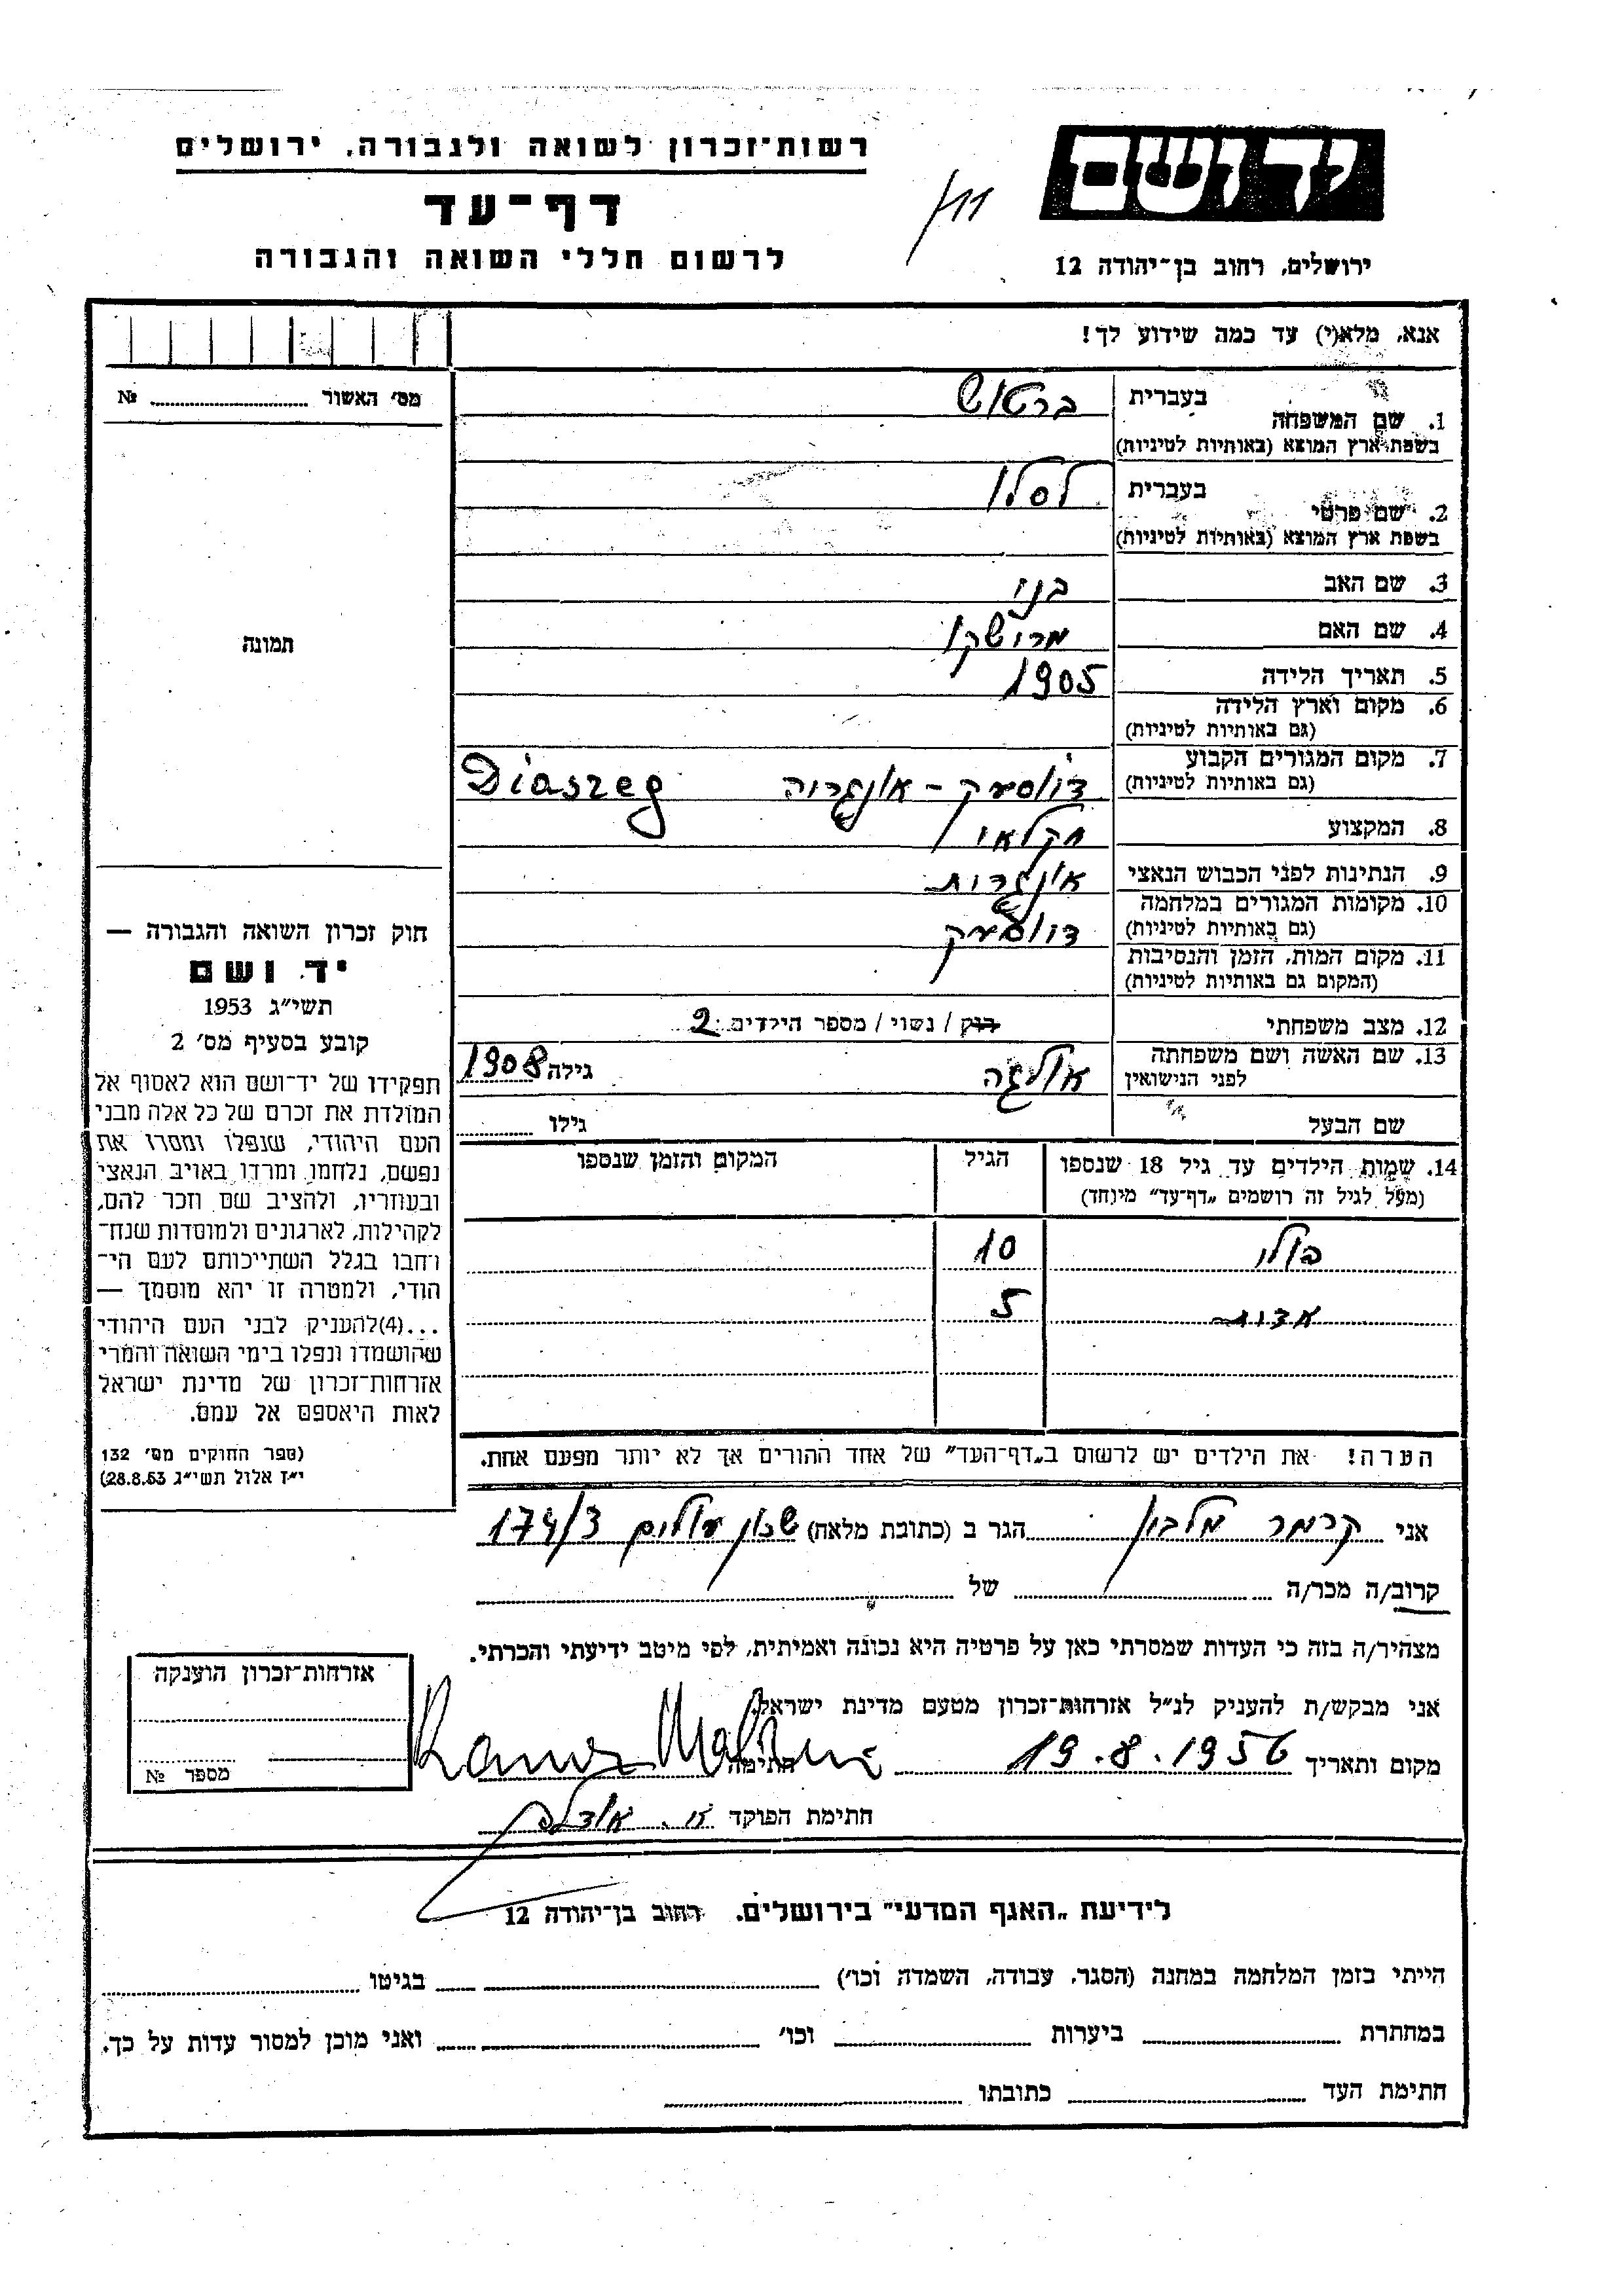 רשות-זכרון לשואה ולגבורה, ירושלים
דף-עד
לרשום חללי השואה והגבורה
יד ושם
ירושלים, רחוב בן-יהודה 12
אנא, מלא(י) עד כמה שידוע לך!
מס' האשור № 
תמונה
1. שם המשפחה בעברית ברטוש
בשפת ארץ המוצא (באותיות לטיניות)
2. שם פרטי בעברית לסלו
בשפת ארץ המוצא (באותיות לטיניות)
3. שם האב בני
4. שם האם מרושקו
5. תאריך הלידה 1905
6. מקום וארץ הלידה
(גם באותיות לטיניות)
7. מקום המגורים הקבוע אונגריה Diaszeg
(גם באותיות לטיניות)
8. המקצוע חקלאי
9. הנתינות לפני הכבוש הנאצי אונגרית
10. מקומות המגורים במלחמה
(גם באותיות לטיניות)
11. מקום המות, הזמן והנסיבות
(המקום גם באותיות לטיניות)
12. מצב משפחתי רוק / נשוי / מספר הילדים 2
13. שם האשה ושם משפחתה אולגה גילה 1908
לפני הנישואין
שם הבעל גילו
14. שמות הילדים עד גיל 18 שנספו הגיל המקום והזמן שנספו
(מעל לגיל זה רושמים „דף-עד" מיוחד)
10
5
הערה! את הילדים יש לרשום ב„דף-העד" של אחד ההורים אך לא יותר מפעם אחת.
חוק זכרון השואה והגבורה —
יד ושם
תשי"ג 1953
קובע בסעיף מס' 2
תפקידו של יד-ושם הוא לאסוף אל
המולדת את זכרם של כל אלה מבני
העם היהודי, שנפלו ומסרו את
נפשם, נלחמו ומרדו באויב הנאצי
ובעוזריו, ולהציב שם וזכר להם,
לקהילות, לארגונים ולמוסדות שנח-
רבו בגלל השתייכותם לעם הי-
הודי, ולמטרה זו יהא מוסמך —
...(4) להעניק לבני העם היהודי
שהושמדו ונפלו בימי השואה והמרי
אזרחות-זכרון של מדינת ישראל
לאות היאספם אל עמם.
(ספר החוקים מס' 132
י"ז אלול תשי"ג 28.8.53)
אני קרמר הגר ב (כתובת מלאה) שכון עולים 174/3
קרוב/ה מכר/ה של
מצהיר/ה בזה כי העדות שמסרתי כאן על פרטיה היא נכונה ואמיתית, לפי מיטב ידיעתי והכרתי.
אני מבקש/ת להעניק לנ"ל אזרחות-זכרון מטעם מדינת ישראל.
מקום ותאריך 19.8.1956 חתימה
חתימת הפוקד
אזרחות-זכרון הוענקה
מספר №
לידיעת „האגף המדעי" בירושלים, רחוב בן-יהודה 12
הייתי בזמן המלחמה במחנה (הסגר, עבודה, השמדה וכו') בגיטו
במחתרת ביערות וכו' ואני מוכן למסור עדות על כך.
חתימת העד כתובתו